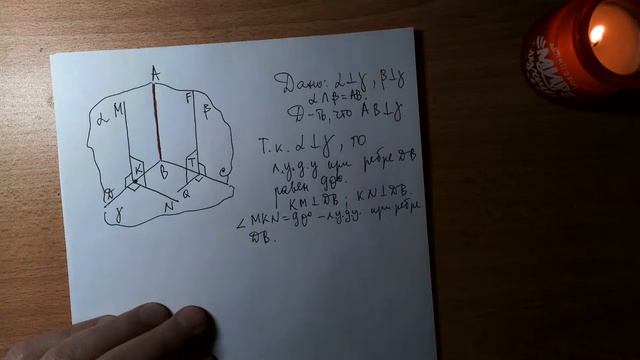 A
α M
F
β
K
T
B
C
D
Q
γ
N
Дано: α⊥γ, β⊥γ
α∩β=AB.
Д-ть, что AB⊥γ
Т.к. α⊥γ, то
л.у.д.у при ребре DB
равен 90°.
KM⊥DB; KN⊥DB.
∠MKN=90° - л.у.ду. при ребре
DB.
МИРА